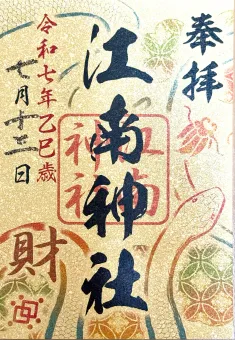 奉拝
江南神社
江南
神社
令和七年乙巳歳
七月十三日
財